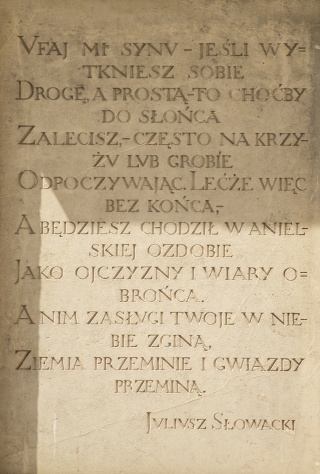 VFAJ MI SYNU – JEŚLI WY=
TKNIESZ SOBIE
DROGĘ, A PROSTĄ-TO CHOĆBY
DO SŁOŃCA
ZALECISZ,- CZĘSTO NA KRZY-
ŻV LVB GROBIE
ODPOCZYWAJĄC. LECŻE WIĘC
BEZ KOŃCA,-
A BĘDZIESZ CHODZIŁ W ANIEL-
SKIEJ OZDOBIE
JAKO OJCZYZNY I WIARY O=
BROŃCA.
A NIM ZASŁVGI TWOJE W NIE-
BIE ZGINĄ,
ZIEMIA PRZEMINIE I GWIAZDY
PRZEMINĄ.
JVLIVSZ SŁOWACKI